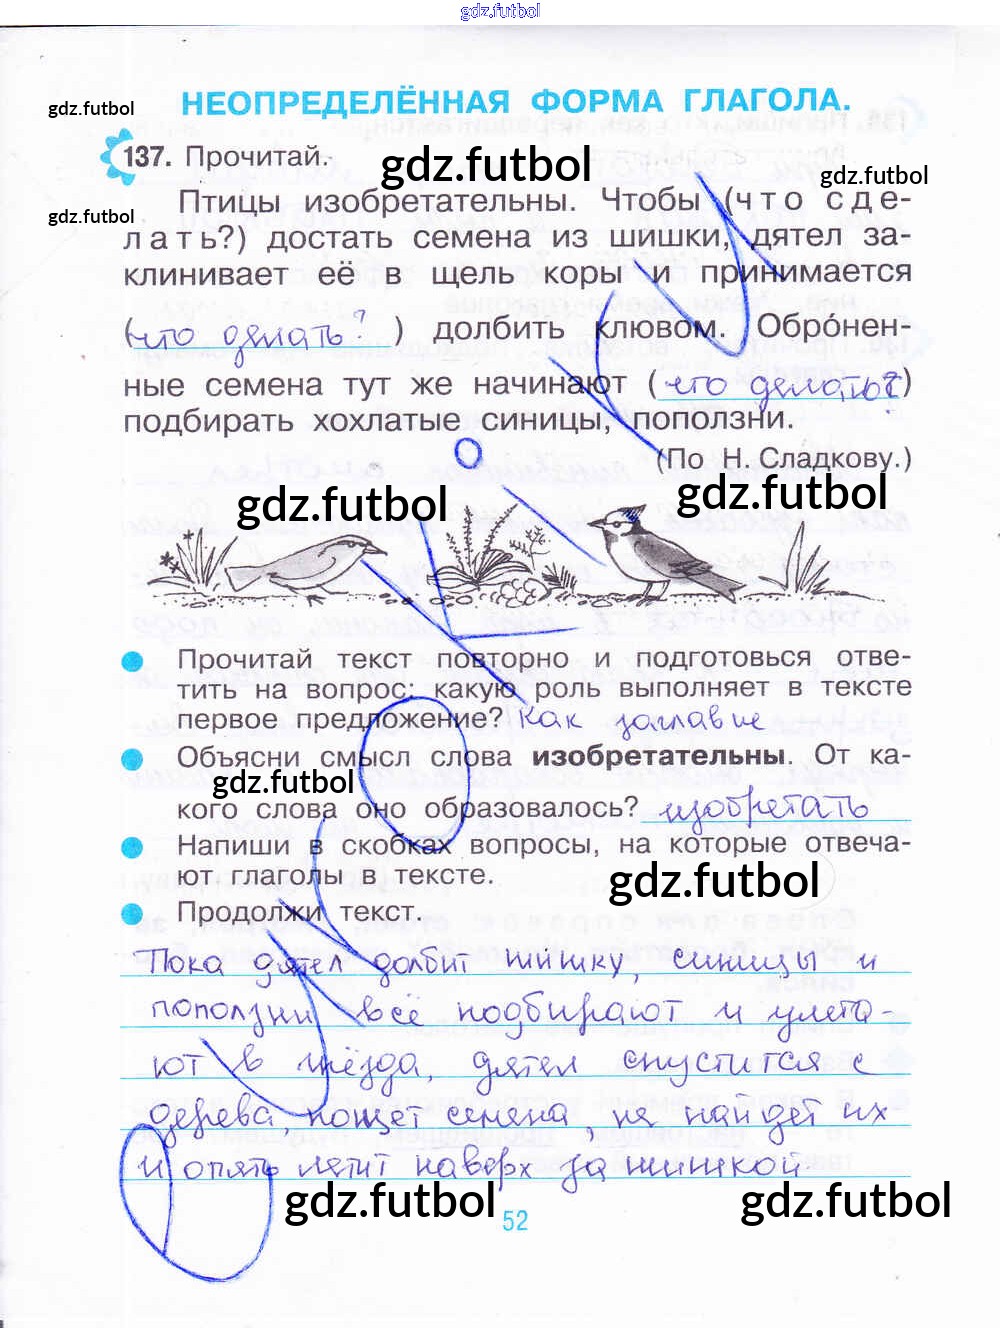 gdz.futbol
НЕОПРЕДЕЛЁННАЯ ФОРМА ГЛАГОЛА.
gdz.futbol
137. Прочитай.
gdz.futbol
gdz.futbol
Птицы изобретательны. Чтобы (что сде-
gdz.futbol
лать?) достать семена из шишки, дятел за-
клинивает её в щель коры и принимается
(что делать? ) долбить клювом. Обро́нен-
ные семена тут же начинают (что делать?)
подбирать хохлатые синицы, поползни.
(По Н. Сладкову.)
gdz.futbol
gdz.futbol
Прочитай текст повторно и подготовься отве-
тить на вопрос: какую роль выполняет в тексте
первое предложение? Как заглавие
Объясни смысл слова изобретательны. От ка-
gdz.futbol
кого слова оно образовалось? изобретать
Напиши в скобках вопросы, на которые отвеча-
ют глаголы в тексте.
gdz.futbol
Продолжи текст.
Пока дятел долбит шишку, синицы и
поползни всё подбирают и улета-
ют в гнёзда, дятел спустится с
дерева, поищет семена, не найдет их
и опять летит наверх за шишкой.
gdz.futbol
gdz.futbol
52